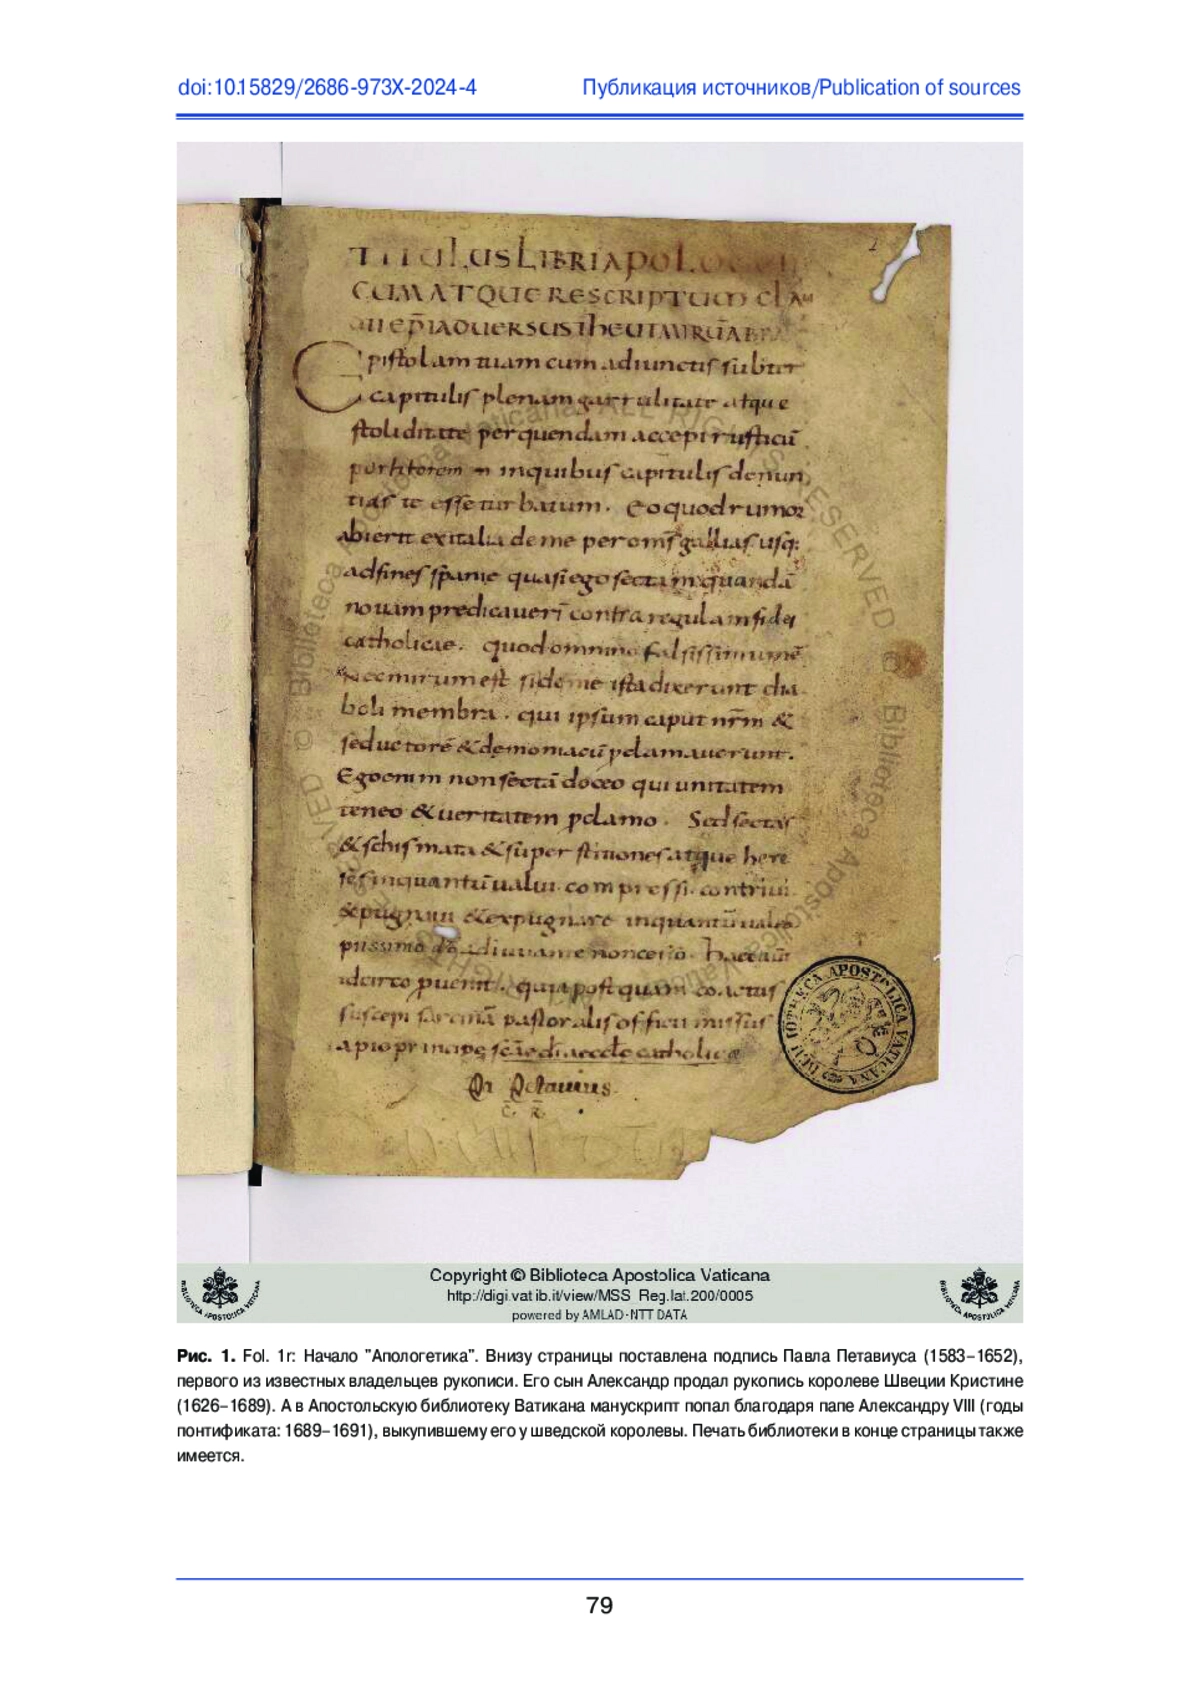 doi:10.15829/2686-973X-2024-4 Публикация источников/Publication of sources
2
TITULUS LIBRI APOLOGETI
CUM ATQUE RESCRIPTUM CLAU
DII EP̄I ADVERSUS THEUTMIRŪ ABBA
Epistolam tuam cum adiunctis subter
capitulis plenam garrulitate atque
stoliditate per quendam accepi rusticū
portitorem in quibus capitulis denun
tias te esse turbatum. Eo quod rumor
abierit ex italia de me per om̄s gallias usq;
ad fines spanie quasi ego sectam quandā
novam predicaverī contra regulam fidei
catholicae. quod omnino falsissimum ē
Nec mirum est si de me ista dixerunt dia
boli membra. qui ipsum caput nr̄m &
seductorē & demoniacū pclamaverunt.
Ego enim non sectā doceo qui unitatem
teneo & veritatem pclamo. Sed sectas
& schismata & superstitiones atque here
ses inquantū valui compressi. contrivi.
& pugnavi & expugnare inquantū valeo
piissimo dō adiuvante non cesso. Hoc autē
idcirco pvenit. quia postquam coactus
suscepi sarcinā pastoralis officii missus
a pio principe scāe dī aeccle catholicae
Petavius
BIBLIOTHECA APOSTOLICA VATICANA
© Biblioteca Apostolica Vaticana ALL RIGHTS RESERVED
Copyright © Biblioteca Apostolica Vaticana
http://digi.vatlib.it/view/MSS_Reg.lat.200/0005
powered by AMLAD-NTT DATA
BIBLIOTECA APOSTOLICA VATICANA
BIBLIOTECA APOSTOLICA VATICANA
Рис. 1. Fol. 1r: Начало "Апологетика". Внизу страницы поставлена подпись Павла Петавиуса (1583–1652),
первого из известных владельцев рукописи. Его сын Александр продал рукопись королеве Швеции Кристине
(1626–1689). А в Апостольскую библиотеку Ватикана манускрипт попал благодаря папе Александру VIII (годы
понтификата: 1689–1691), выкупившему его у шведской королевы. Печать библиотеки в конце страницы также
имеется.
79